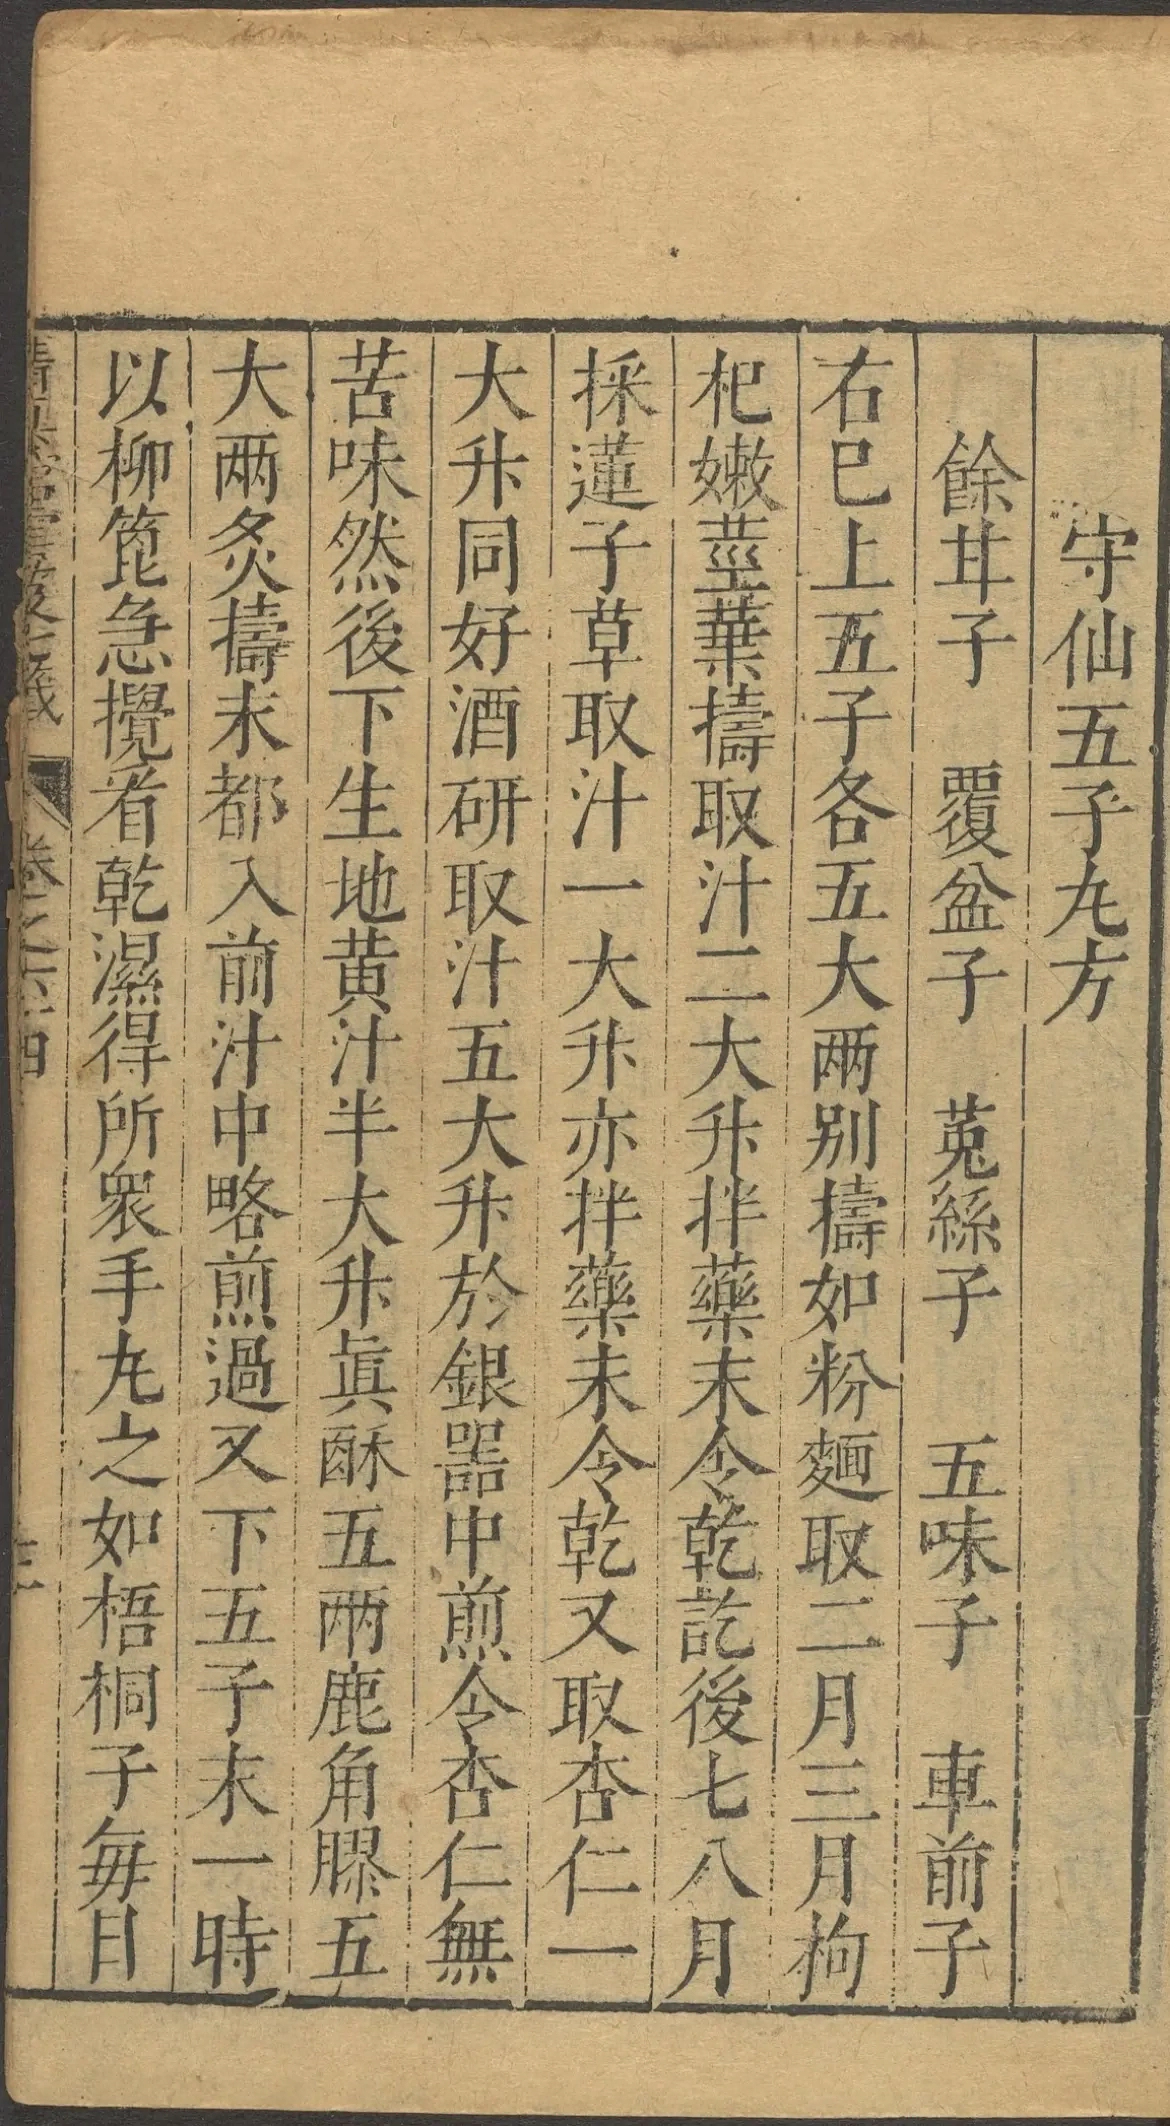 守仙五子丸方
餘甘子 覆盆子 菟絲子 五味子 車前子
右已上五子各五大兩别擣如粉麵取二月三月枸
杞嫩莖葉擣取汁二大升拌藥末令乾訖後七八月
採蓮子草取汁一大升亦拌藥末令乾又取杏仁一
大升同好酒研取汁五大升於銀器中煎令杏仁無
苦味然後下生地黄汁半大升眞酥五兩鹿角膠五
大兩炙擣末都入前汁中略煎過又下五子末一時
以柳箆急攪看乾濕得所衆手丸之如梧桐子每日
卷之